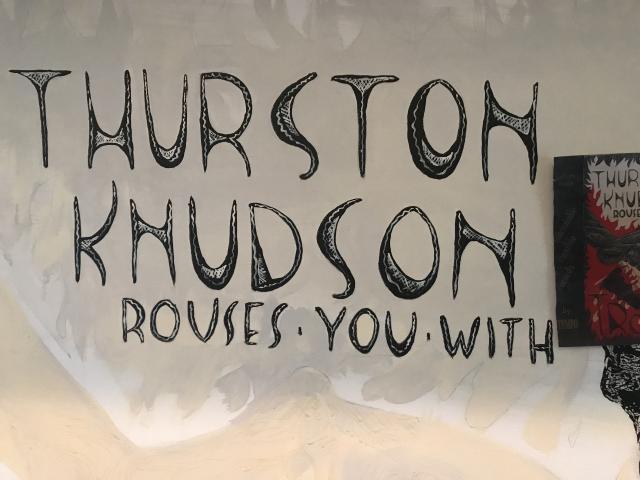 THURSTON
KNUDSON
ROUSES · YOU · WITH
THUR
KNU
ROUSE